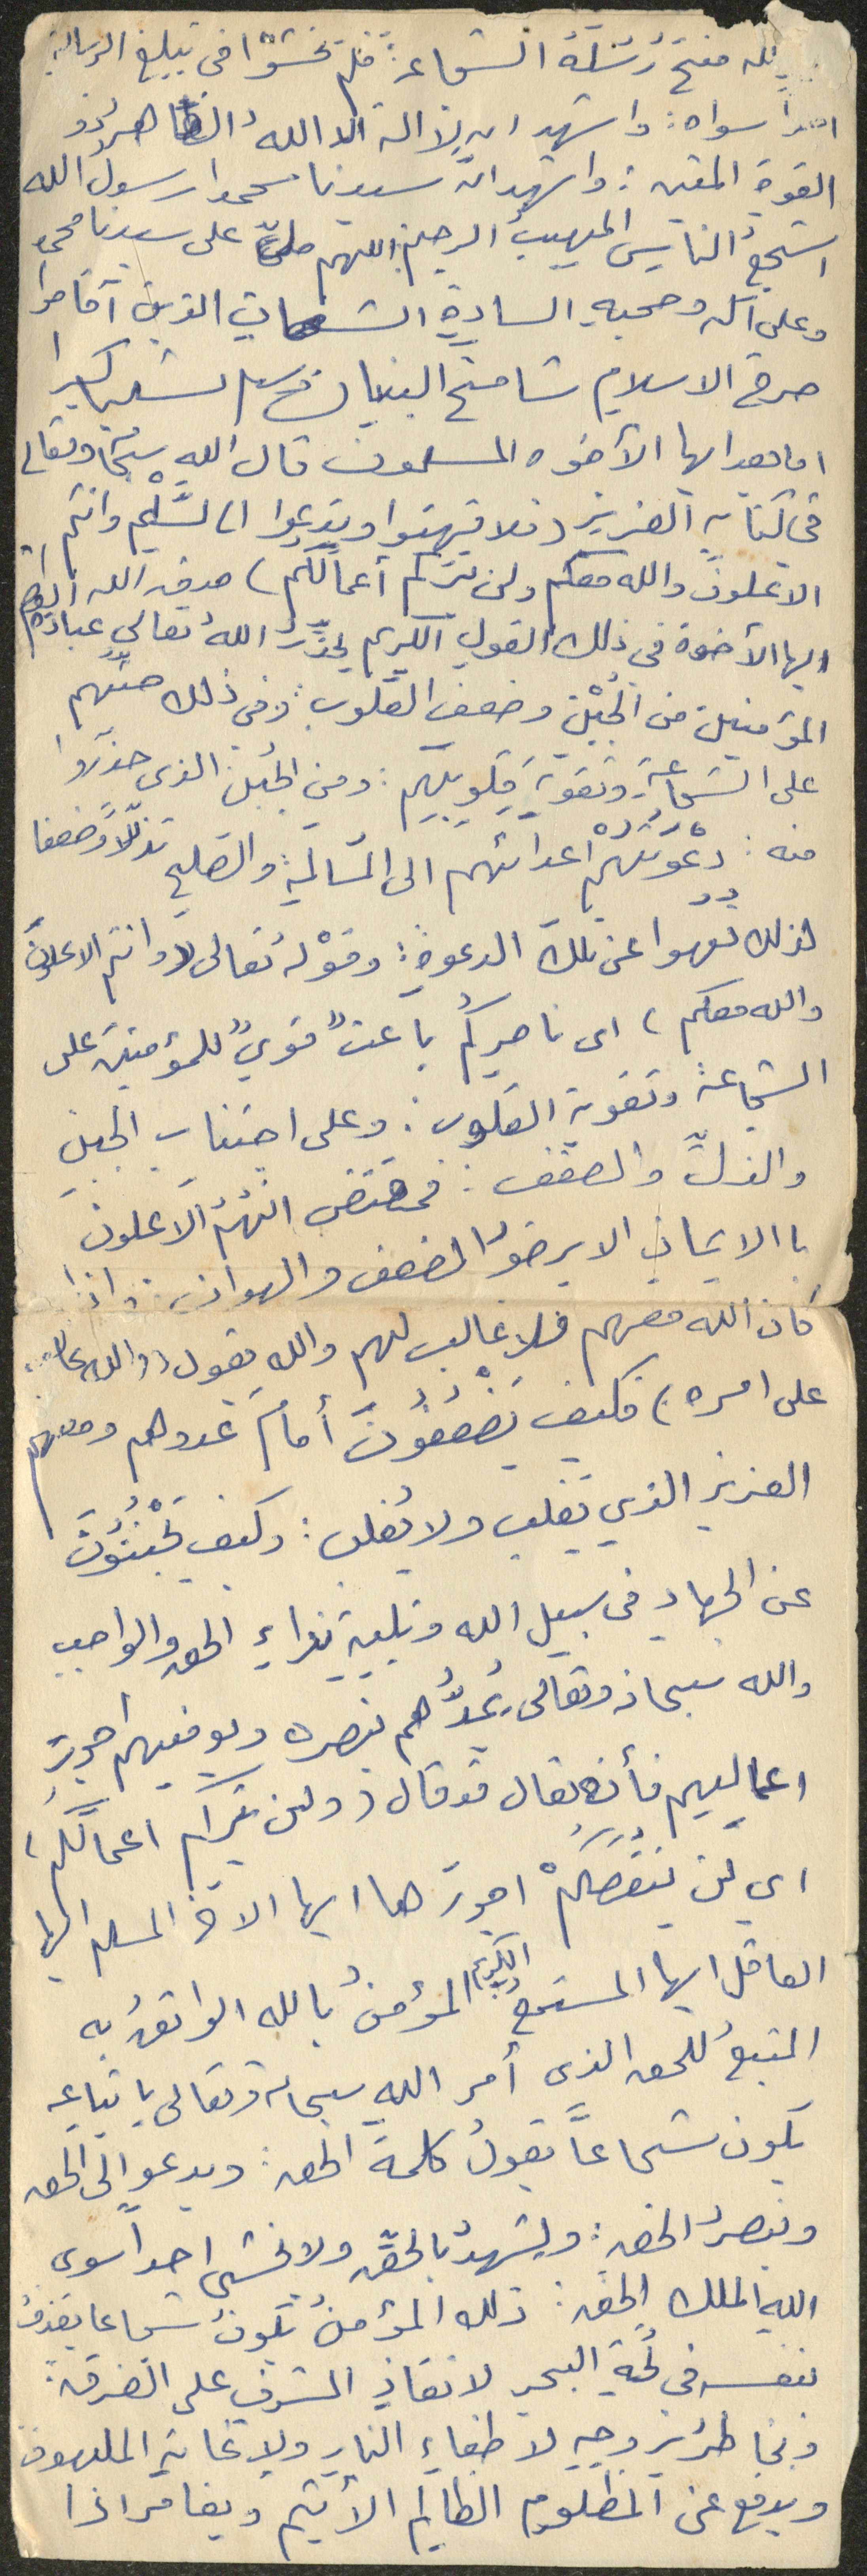 لله منح رُسُلَهُ الشجاعةَ فلم يخشَوْا في تبليغ الرسالةِ
احداً سواه: واشهد ان لا اله الا اللهُ القاهر ذو
القوةِ المتين: واشهد انّ سيدنا محمدا رسولُ الله
اشجعُ الناسِ المهيبُ الرحيم: اللهم صلِّ على سيدنا محمد
وعلى آله وصحبهِ السادةِ الشجعانِ الذين أقاموا
صرح الاسلام شامخ البنيان وسلم تسليما كثيرا
اما بعد ايها الأخوه المسلمون قال الله سبحانه وتعالى
في كتابه العزيز (فلا تهنوا وتدعوا الى السَّلْم وانتم
الاعلونَ والله معكم ولن يَتِرَكم أعمالَكم) صدق الله العظيم
ايها الأخوة في ذلك القول الكريم يحذِّرُ اللهُ تعالى عبادَه
المؤمنين من الجُبْنِ وضعفِ القلوب: وفي ذلك حثَّهم
على الشجاعةِ وتقويةِ قلوبِهم: ومن الجُبنِ الذي حذروا
منه: دعْوَتُهُمْ اعدائهم الى المُسالَمةِ والصلحِ تذلُّلاً وضعفا
لذلك نُهوا عن تلك الدعوةِ: وقوْلهُ تعالى (وانتم الاعلونَ
والله معكم) اى ناصركُم باعثٌ قويٌ للمؤمنين على
الشجاعة وتقوية القلوب: وعلى اجتناب الجبنِ
والذلِّ والضعف: فمقتضى انَّهُمُ الأعلونَ
باالايمانِ الا يرضوا الضعف والهوان: واذا
كان الله معهم فلا غالب لهم والله يقول (والله غالب
على امره) فكيف يَضْعُفُونَ أمامَ عدوهم ومعهم
العزيز الذي يَغلب ولا يُغلب: وكيف يَجْبُنُونَ
عن الجهادِ في سبيل الله وتلبيةِ نداءِ الحق والواجب
والله سبحانه وتعالى يُمدُّهم بنصره ويوفيهم اجورَ
اعمالِهم فأنه تعالى قد قال (ولن يتركم اعمالَكُم)
اي لن يَنْقُصَكُمْ اجورَها ايها الاخ المسلم ايها
العاقل ايها المستمعُ الكريم المؤمنُ بالله الواثقُ به
المتبعُ للحق الذي أمر الله سبحانه وتعالى باتباعه
يكون شجاعاً يقولُ كلمةَ الحق: ويدعو الى الحق
وينصرُ الحق: ويشهدُ بالحقّ ولا يخشى احداً سوى
اللهِ الملك الحق: ذلك المؤمنُ يكونُ شجاعا يقذفُ
بنفسه في لُجّةِ البحر لانقاذِ المشرف على الغرق:
ويخاطرُ بروحِه لاطفاءِ النارِ ولاغاثةِ الملهوف
ويدفع عن المظلومِ الظالِم الأثيم ويغامر اذا